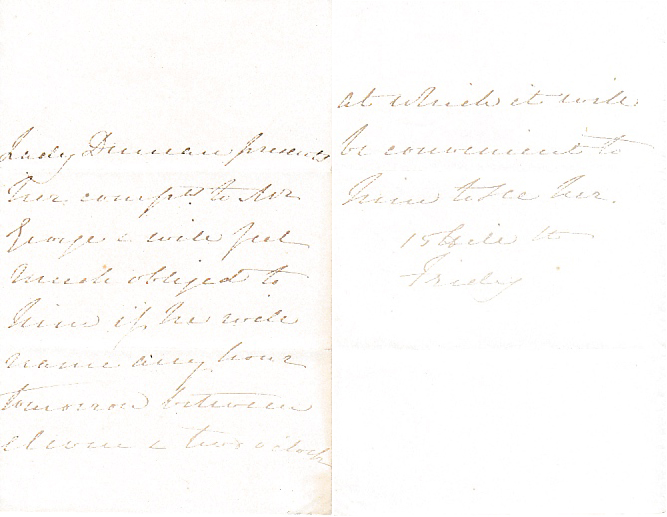 Lady Duncan presents
her compts. to Mr
George & will feel
much obliged to
him if he will
name any hour
tomorrow between
eleven & two o'clock
at which it will
be convenient to
him to see her.
15 Hill St
Friday